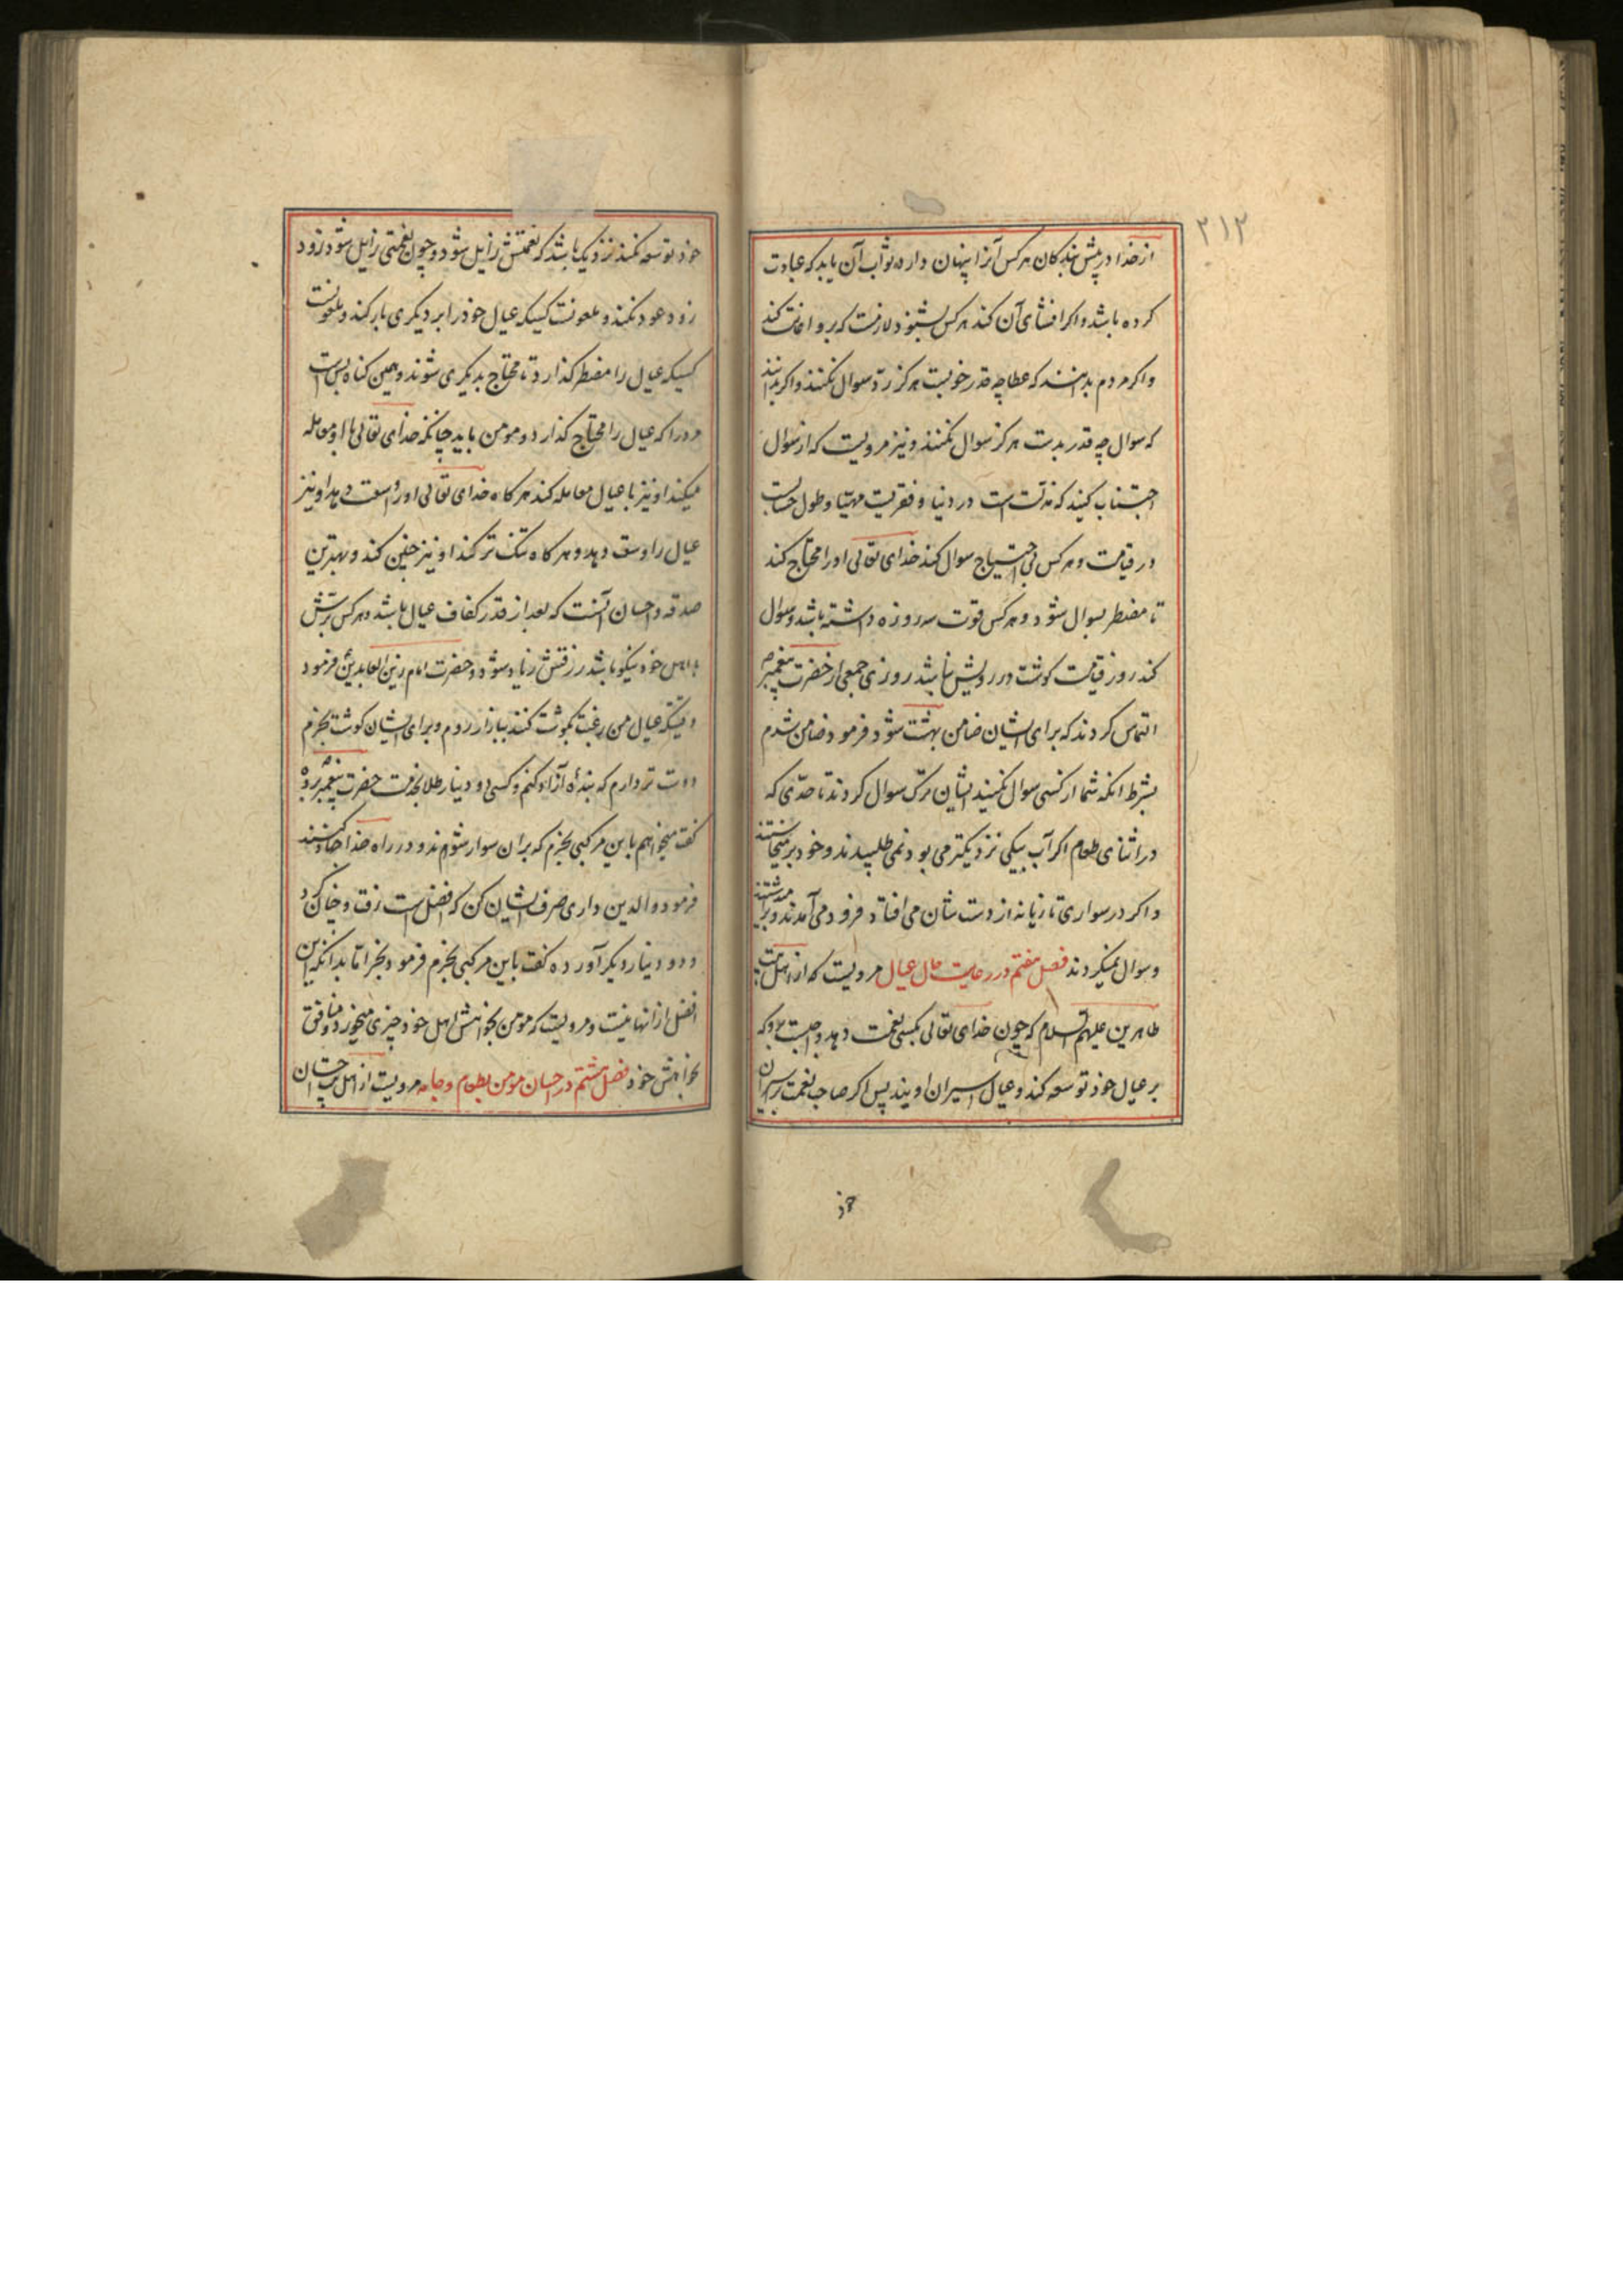 ۲۱۲
از خدا در پیش بندکان هر کس آنرا پنهان دارد ثواب آن یابد که عبادت
کرده باشد و اکر افشای آن کند هر کس بشنود لازمست که برو اعانت کند
و اکر مردم بدانند که عطا چه قدر خوبست هرکز ردّ سوال نکنند و اکر بدانند
که سوال چه قدر بدست هرکز سوال نکنند و نیز مرویست که از سوال
اجتناب کنید که مذلّت است در دنیا و فقریست مهیّا و طول حسابست
در قیامت و هر کس بی احتیاج سوال کند خدای تعالی او را محتاج کند
تا مضطر بسوال شود و هر کس قوت سه روزه داشته باشد و سوال
کند روز قیامت کوشت در رویش نباشد روزی جمعی از حضرت پیغمبر ص
التماس کردند که برای ایشان ضامن بهشت شود فرمود ضامن شدم
بشرط انکه شما از کسی سوال نکنید ایشان ترک سوال کردند تا حدّی که
در اثنای طعام اکر آب بیکی نزدیکتر می بود نمی طلبیدند و خود بر میخاستند
و اکر در سواری تازیانه از دست شان می افتاد فرود می آمدند و بر میداشتند
و سوال نمیکردند فصل هفتم در رعایت حال عیال مرویست که از اهل بیت
طاهرین علیهم السلام که چون خدای تعالی بکسی نعمت دهد واجبست برو که
بر عیال خود توسعه کند و عیال اسیران اویند پس اکر صاحب نعمت بر اسیران
خود
خود توسعه نکند نزدیک باشد که نعمتش زایل شود و چون نعمتی زایل شود زود
زود عود نکند و ملعونست کسیکه عیال خود را بر دیکری بار کند و ملعونست
کسیکه عیال را مضطر کذارد تا محتاج بدیکری شوند و همین کناه بس است
مرد را که عیال را محتاج کذارد و مومن باید چنانکه خدای تعالی با او معامله
میکند او نیز با عیال معامله کند هرکاه خدای تعالی او را وسعت دهد او نیز
عیال را وسعت دهد و هرکاه تنک تر کند او نیز چنین کند و بهترین
صدقه و احسان آنست که بعد از قدر کفاف عیال باشد و هر کس برّش
با اهل خود نیکو باشد رزقش زیاد شود و حضرت امام زین العابدین فرمود
وقتیکه عیال من رغبت بکوشت کنند ببازار روم و برای ایشان کوشت بخرم
دوست تر دارم که بندهٔ آزاد کنم و کسی دو دینار طلا بخدمت حضرت پیغمبر برد
کفت میخواهم باین مرکبی بخرم که بران سوار شوم و در راه خدا جهاد کنند
فرمود والدین داری صرف ایشان کن که افضل است رفت و چنان کرد
و دو دینار دیکر آورده کفت باین مرکبی بخرم فرمود بخر امّا بدانکه این
افضل از انها نیست و مرویست که مومن بخواهش اهل خود چیزی میخورد و منافق
بخواهش خود فصل هشتم در احسان مومن بطعام و جامه مرویست از اهل بیت احسان